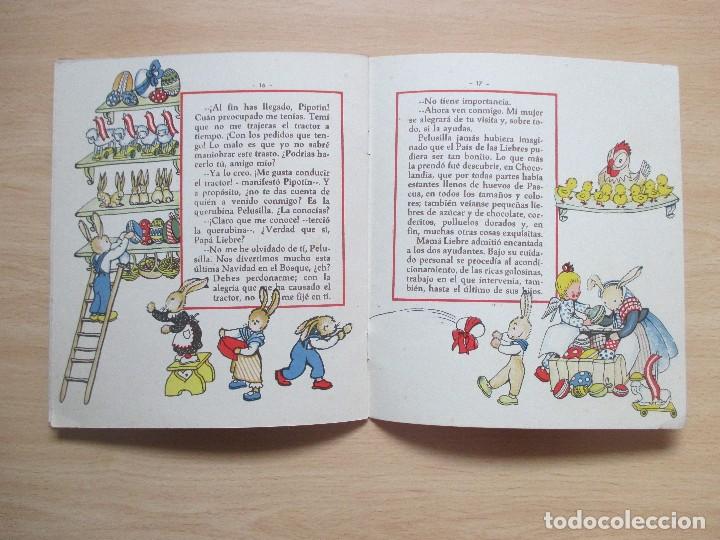 - 16 -
--¡Al fin has llegado, Pipotín!
Cuán preocupado me tenías. Temí
que no me trajeras el tractor a
tiempo. ¡Con los pedidos que ten-
go! Lo malo es que yo no sabré
maniobrar este trasto. ¿Podrías ha-
cerlo tú, amigo mío?
--Ya lo creo. ¡Me gusta conducir
el tractor! - manifestó Pipotín--. Y
a propósito, ¿no te das cuenta de
quién a venido conmigo? Es la
querubina Pelusilla. ¿La conocías?
--¡Claro que me conoce! --terció
la querubina--. ¿Verdad que sí,
Papá Liebre?
--No me he olvidado de tí, Pelu-
silla. Nos divertimos mucho esta
última Navidad en el Bosque, ¿eh?
Debes perdonarme; con la
alegría que me ha causado el
tractor, no me fijé en tí.
- 17 -
--No tiene importancia.
--Ahora ven conmigo. Mi mujer
se alegrará de tu visita y, sobre to-
do, si la ayudas.
Pelusilla jamás hubiera imagi-
nado que el País de las Liebres pu-
diera ser tan bonito. Lo que más
la prendó fue descubrir, en Choco-
landia, que por todas partes había
estantes llenos de huevos de Pas-
cua, en todos los tamaños y colo-
res; también veíanse pequeñas lie-
bres de azúcar y de chocolate, cor-
deritos, polluelos dorados y, en
fin, muchas otras cosas exquisitas.
Mamá Liebre admitió encantada
a los dos ayudantes. Bajo su cuida-
do personal se procedía al acondi-
cionamiento, de las ricas golosinas,
trabajo en el que intervenía, tam-
bién, hasta el último de sus hijos.
todocoleccion
todocoleccion.net